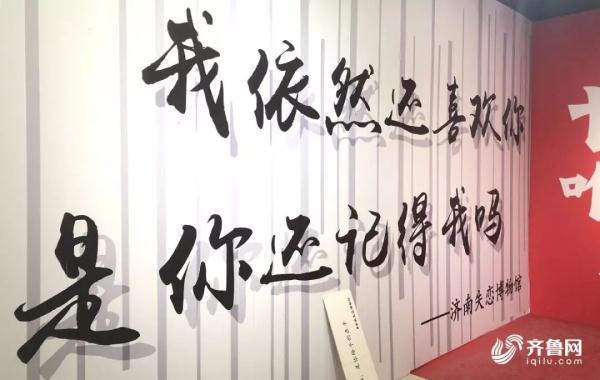 我依然还喜欢你
是你还记得我吗
——济南失恋博物馆
齐鲁网
iqilu.com